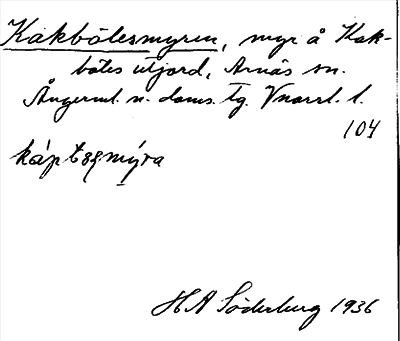 Kakbölesmyren, myr å Kak-
böles utjord, Arnäs sn.
Ångerml. n. doms. tg. Vnorrl. l.
104
HA Söderberg 1936